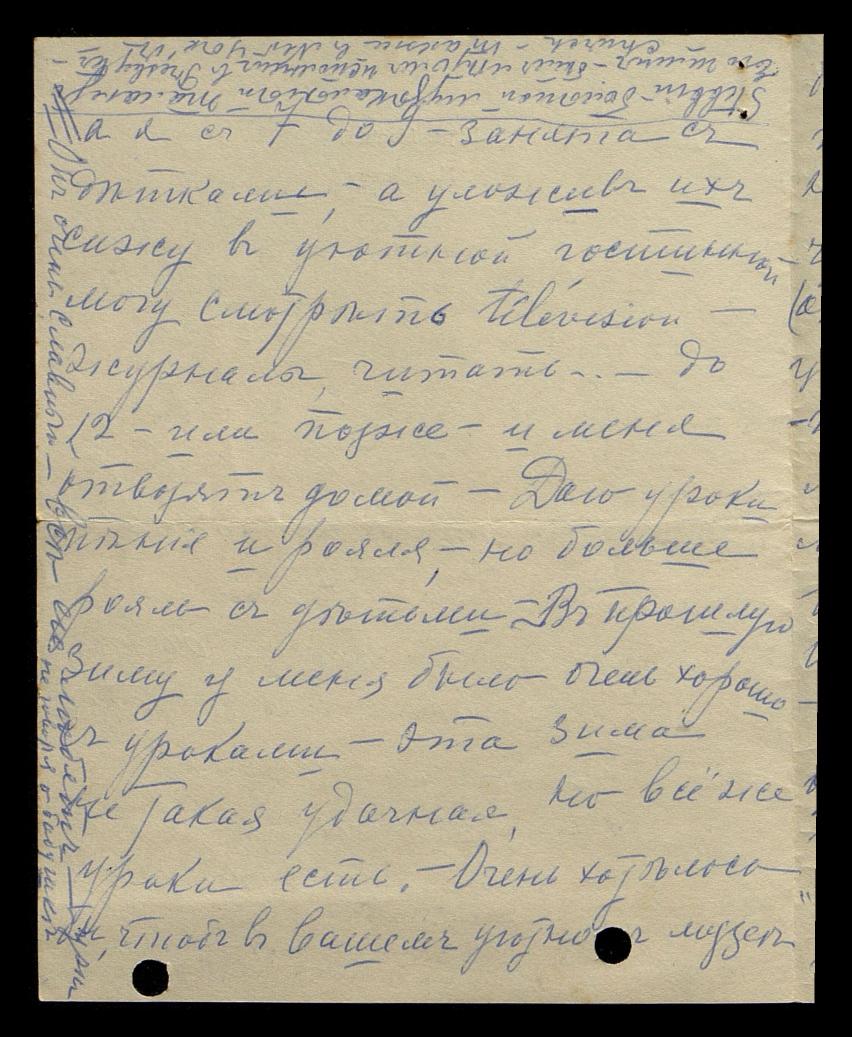 а я съ 7 до 9 – занята съ
дѣтками, – а уложивъ ихъ
сижу въ уютной гостинной
могу смотрѣть télévision –
журналы, читать... – до
12 – или позже – и меня
отвозятъ домой – Даю уроки
пѣнія и рояля, – но больше
рояль съ дѣтьми – Въ прошлую
зиму у меня было очень хорошо
съ уроками – эта зима
не такая удачная, но всё же
уроки есть. – Очень хотѣлось
чтобъ въ вашемъ уютномъ музеѣ
Онъ очень славный – всѣ его любятъ –
не говоря о бабушкѣ